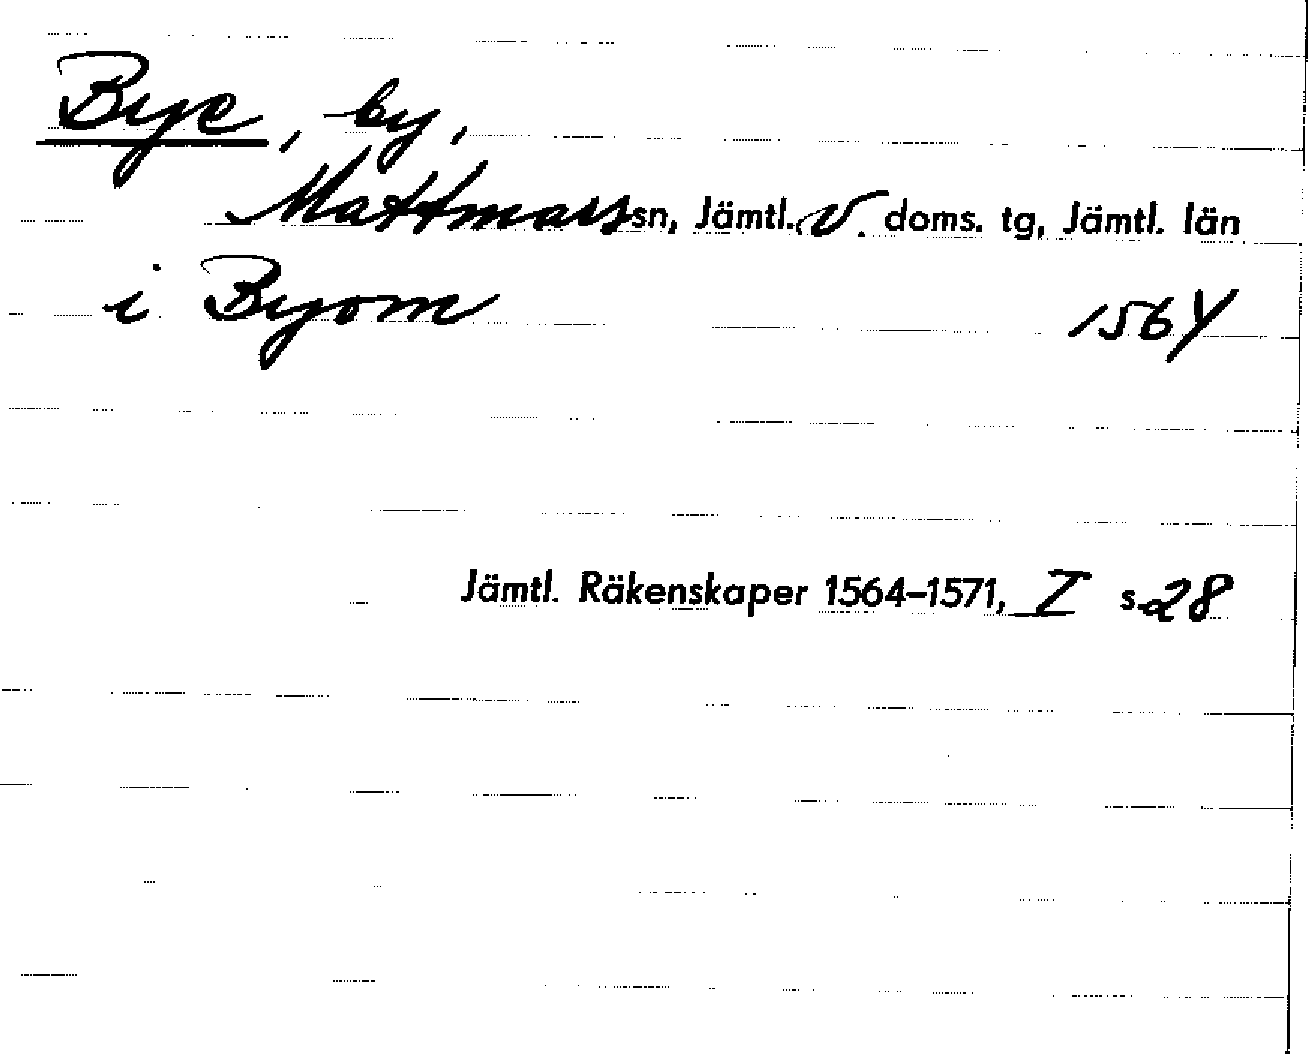 Bye, by,
Mattmars sn, Jämtl. V. doms. tg, Jämtl. län
i Byom 1564
Jämtl. Räkenskaper 1564–1571, I s. 28